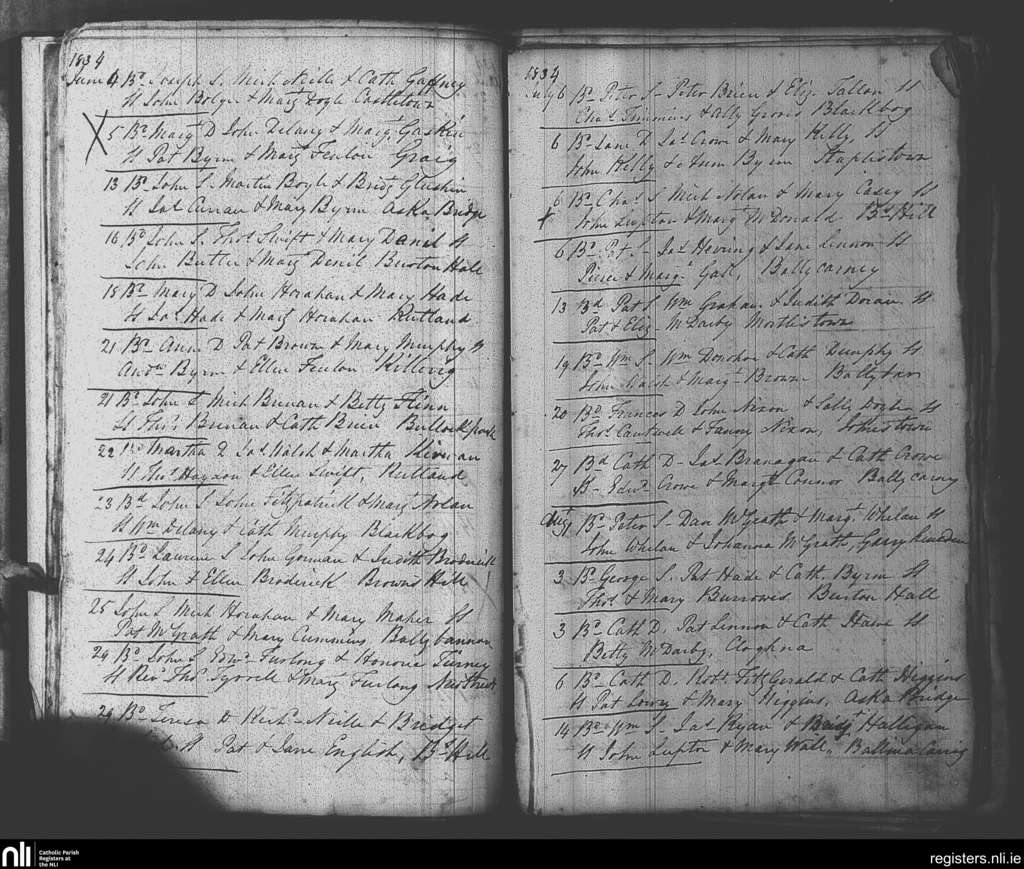 1834
June 4 Bd. Joseph S. Mich Neille & Cath Gaffney
St John Bolger & Margt Doyle Castletown
X 5 Bd. Margt D John Delany & Margt Gaskin
St Pat Byrn & Margt Fenlon Graig
13 Bd. John S. Martin Boyle & Bridgt
St Jas Curran & Mary Byrn Aska Bridge
16 Bd John S. Thos Swift & Mary Danil St
John Butler & Margt Denil Burton Hall
18 Bd. Mary D John Horahan & Mary Hade
St Jas Hade & Margt Horahan Rutland
21 Bd. Ann D Pat Brown & Mary Murphy St
Andw Byrn & Ellen Fenlon Killerig
21 Bd. John S Mich Brenan & Betty Flinn
St Thos Brenan & Cath Brien Bullock park
22 Bd Martha D Jas Walsh & Martha Kirwan
St Thos Haydon & Ellen Swift, Rutland
23 Bd John S John Fitzpatrick & Margt Nolan
St Wm Delany & Cath Murphy Blackbog
24 Bd. Laurence S John Gorman & Judith Broderick
St John & Ellen Broderick Browns Hill
25 John S Mich Horahan & Mary Maher St
Pat McGrath & Mary Cummins Ballybannon
29 Bd. John S. Edwd Furlong & Honoria Turney
St Revd Thos Tyrrell & Margt Furlong
29 Bd. Teresa D Richd Neille & Bridget
St Pat & Jane English, Bs Hill
1834
July 6 Bd. Peter S. Peter Brien & Eliz. Tallon St
Chas Timmins & Ally Blackbog
6 Bd. Jane D Jas Crowe & Mary Kelly St
John Kelly & Ann Byrn Staplestown
6 Bd. Chas. S Mich Nolan & Mary Casey St
X John Lupton & Mary McDonald Bs Hill
6 Bd. Pat. S. Jas Hevring & Jane Lennon St
Pierce & Margt Gall, Ballycarney
13 Bd Pat S Wm Graham & Judith Doran St
Pat & Eliz McDarby Mortlestown
19 Bd Wm S. Wm Donohoe & Cath Dunphy St
John Walsh & Margt Brown Ballybar
20 Bd Frances D John Nixon & Sally Doyle St
Thos Cantwell & Fanny Nixon, Johnstown
27 Bd Cath D. Jas Branagan & Cath Crowe
St Edwd Crowe & Margt Connor Ballycarny
Augt 1 Bd. Peter S. Dan McGrath & Margt Whelan St
John Whelan & Johanna McGrath,
3 Bd George S. Pat Hade & Cath. Byrn St
Thos & Mary Burrowes Burton Hall
3 Bd. Cath D. Pat Lennon & Cath St
Betty McDarby, Cloghna
6 Bd. Cath D. Robt FitzGerald & Cath Higgins
St Pat Lowry & Mary Higgins, Aska Bridge
14 Bd. Wm S. Jas Ryan & Bridgt Halligan
St John Lupton & Mary Wall, Ballinacarrig
nli
Catholic Parish
Registers at
the NLI
registers.nli.ie